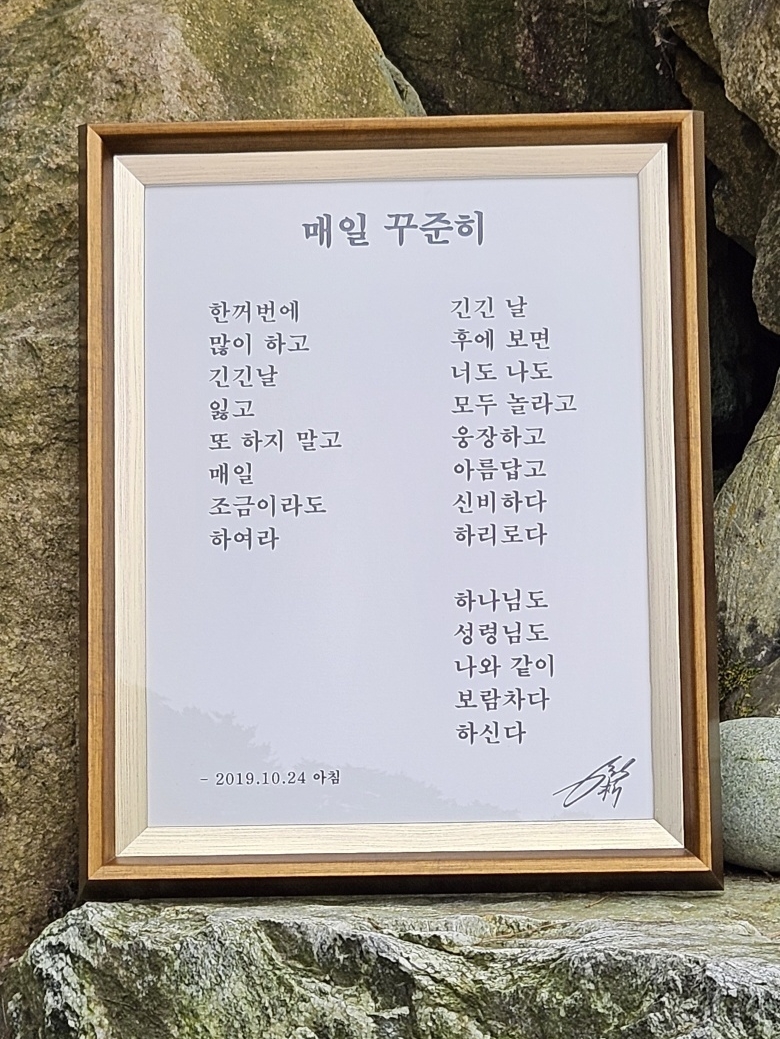 매일 꾸준히
한꺼번에
많이 하고
긴긴날
잃고
또 하지 말고
매일
조금이라도
하여라
긴긴 날
후에 보면
너도 나도
모두 놀라고
웅장하고
아름답고
신비하다
하리로다
하나님도
성령님도
나와 같이
보람차다
하신다
- 2019.10.24 아침